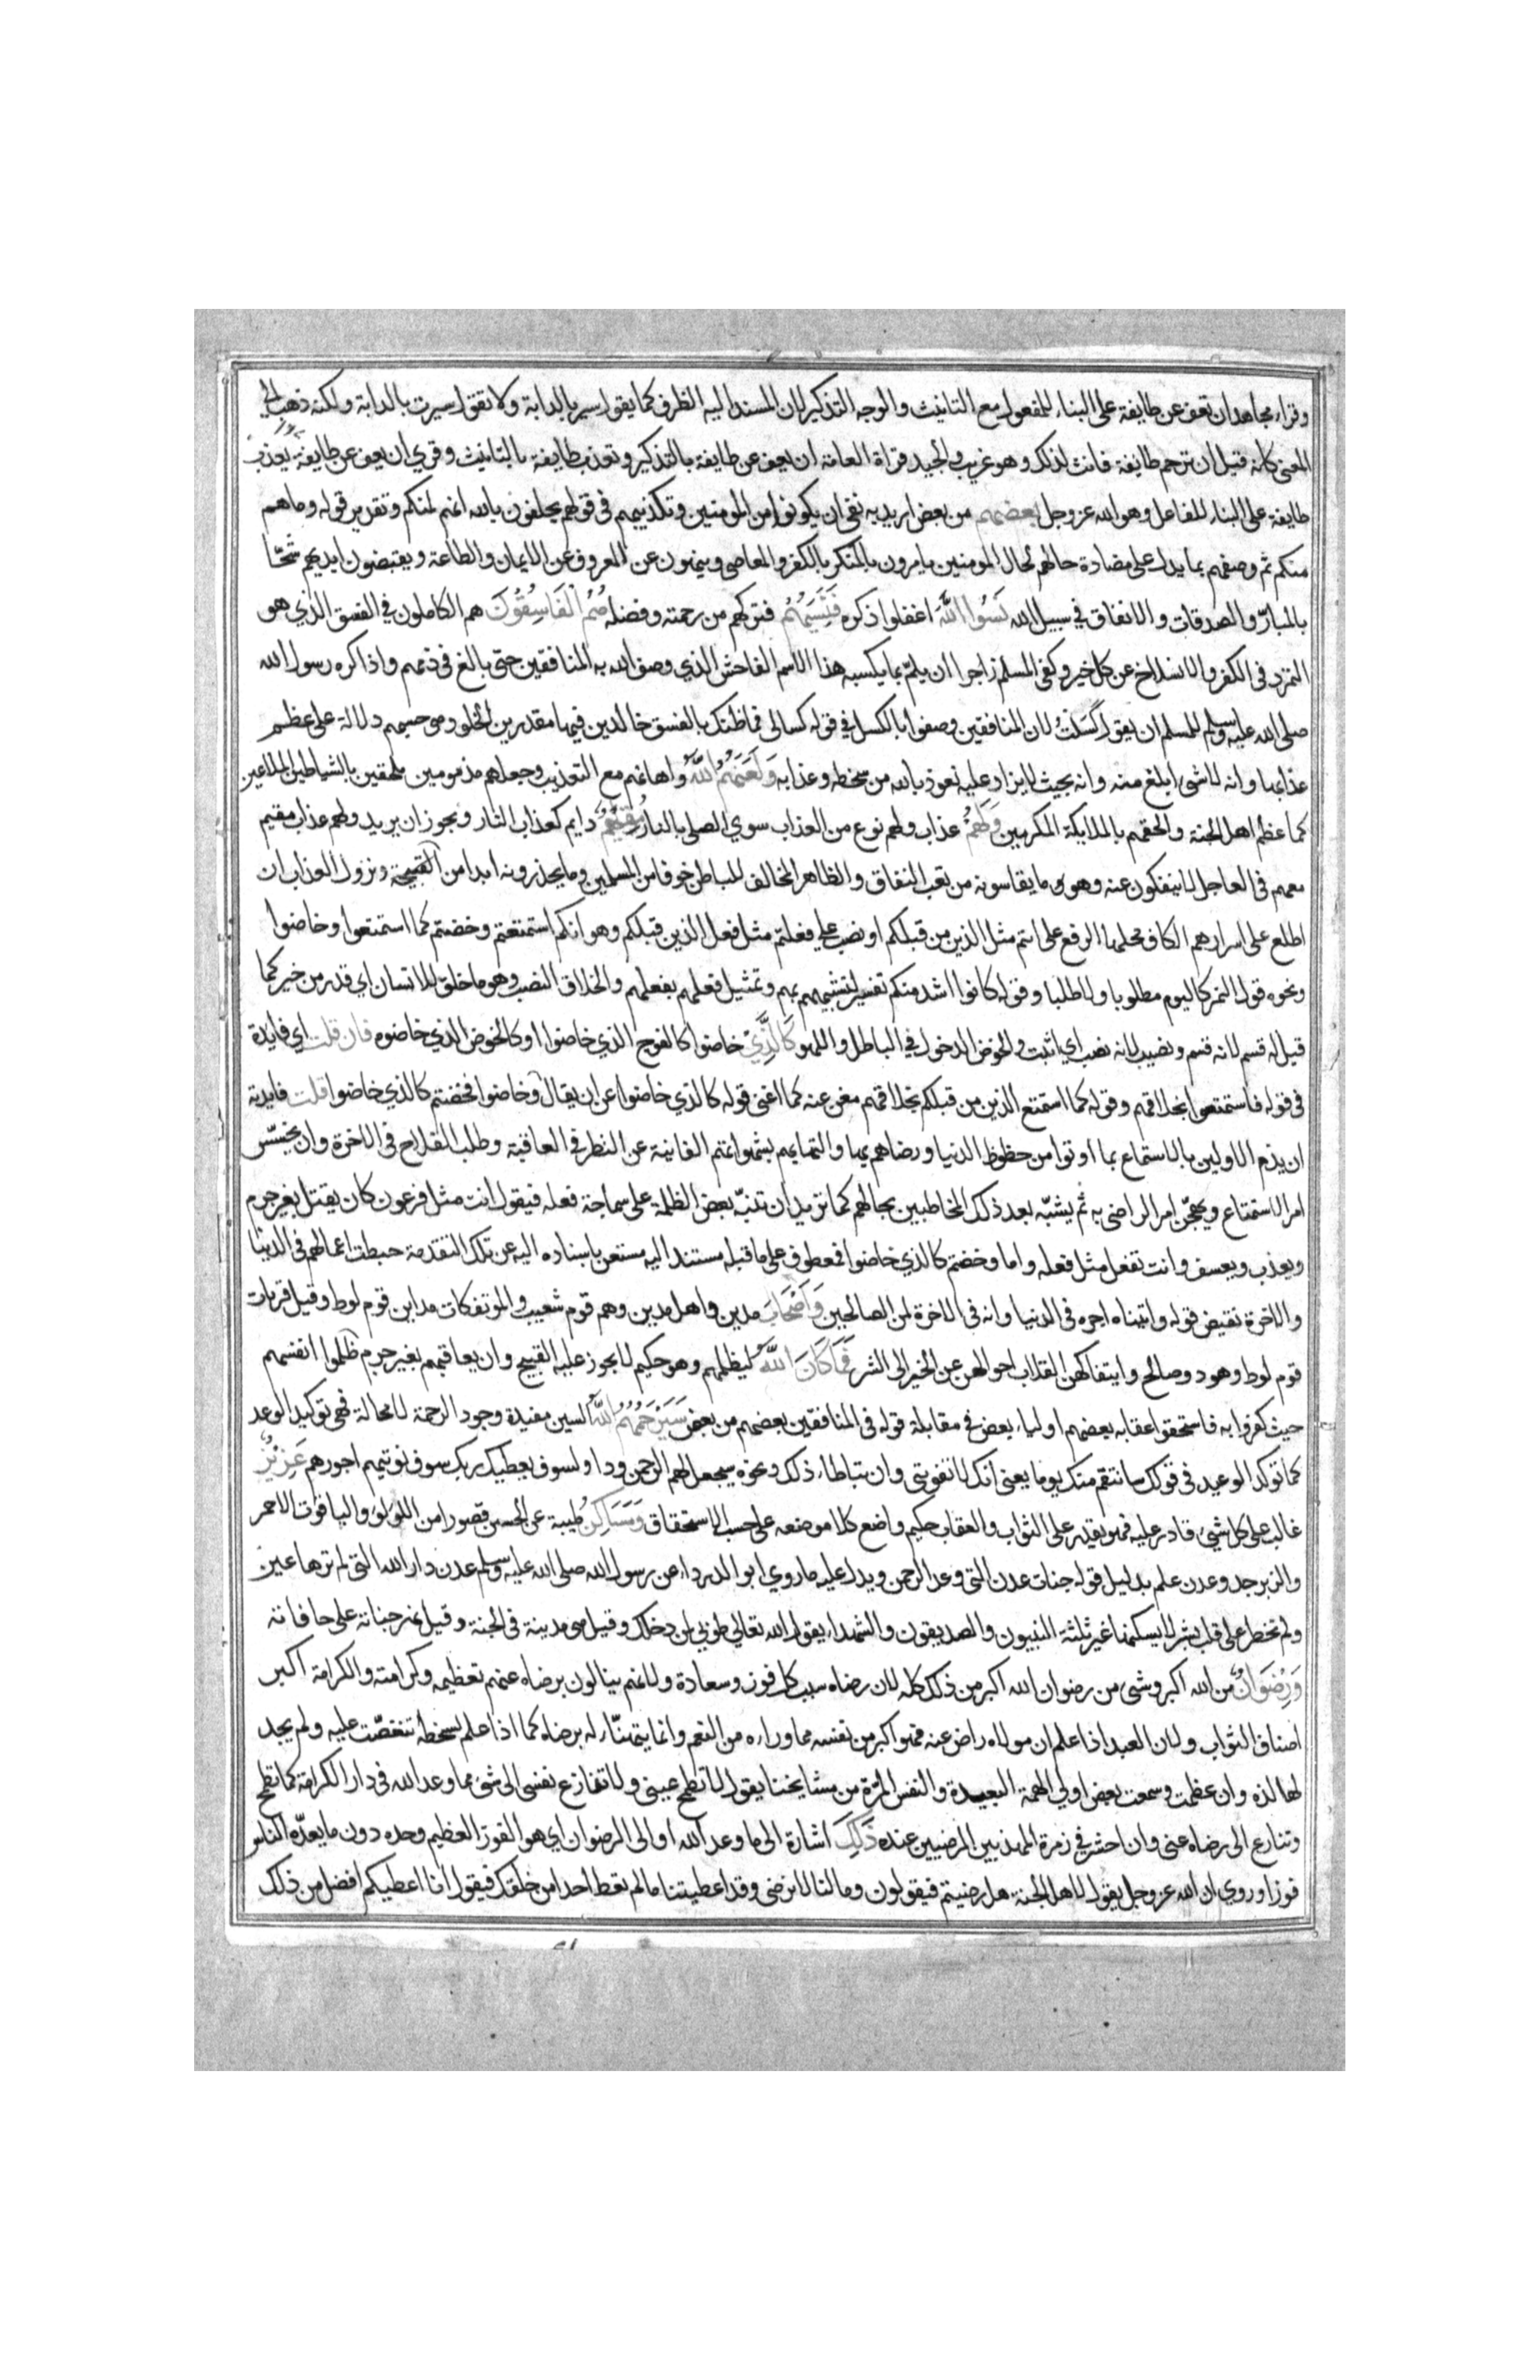 وقراء مجاهد ان تعف عن طايفة على البناء للمفعول مع التانيث والوجه التذكير لان المسند اليه الظرف كما يقول سير بالدابة ولا تقول سيرت بالدابة ولكنه ذهب الى
المعنى كانه قيل ان ترحم طايفة فانث لذلك وهو غريب والجيد قراة العامة ان يعف عن طايفة بالتذكير وتعذب طايفة بالتانيث وقري ان يعف عن طايفة يعذب
طايفة على البناء للفاعل وهو الله عز وجل بعضهم من بعض اريد به نفي ان يكونوا من المومنين وتكذيبهم في قولهم يحلفون بالله انهم لمنكم وتقرير قوله وما هم
منكم ثم وصفهم بما يدل على مضادة حالهم لحال المومنين يامرون بالمنكر بالكفر والمعاصي وينهون عن المعروف عن الايمان والطاعة ويقبضون ايديهم شحا
بالمبار والصدقات والانفاق في سبيل الله نسوا الله اغفلوا ذكره فنسيهم فتركهم من رحمته وفضله هم الفاسقون هم الكاملون في الفسق الذي هو
التمرد في الكفر والانسلاخ عن كل خير وكفى المسلم زاجرا ان يلم بما يكسبه هذا الاسم الفاحش الذي وصف الله به المنافقين حتى بالغ في ذمهم واذا كره رسول الله
صلى الله عليه وسلم للمسلم ان يقول كسلت لان المنافقين وصفوا بالكسل في قوله كسالى فما ظنك بالفسق خالدين فيها مقدرين الخلود هي حسبهم دلالة على عظم
عذابها وانه لا شئ ابلغ منه وانه بحيث لا يزاد عليه نعوذ بالله من سخطه وعذابه ولعنهم الله واهانهم مع التعذيب وجعلهم مذمومين ملحقين بالشياطين الملاعين
كما عظم اهل الجنة والحقهم بالملايكة المكرمين ولهم عذاب ولهم نوع من العذاب سوي الصلي بالنار مقيم دايم كعذاب النار ويجوز ان يريد ولهم عذاب مقيم
معهم في العاجل لا ينفكون عنه وهو ما يقاسونه من تعب النفاق والظاهر المخالف للباطن خوفا من المسلمين وما يحذرونه ابدا من الفضيحة ونزول العذاب ان
اطلع على اسرارهم الكاف محلها الرفع على انتم مثل الذين من قبلكم او نصب على فعلتم مثل فعل الذين قبلكم وهو انكم استمتعتم وخضتم كما استمتعوا وخاضوا
ونحوه قول النمر كاليوم مطلوبا ولا طلبا وقوله كانوا اشد منكم تفسير لتشبيههم بهم وتمثيل فعلهم بفعلهم والخلاق النصيب وهو ما خلق للانسان اي قدر من خير كما
قيل له قسم لانه قسم ونصيب لانه نصب اي اثبت والخوض الدخول في الباطل واللهو كالذي خاضوا كالفوج الذي خاضوا او كالخوض الذي خاضوه فان قلت اي فايدة
في قوله فاستمتعوا بخلاقهم وقوله كما استمتع الذين من قبلكم بخلاقهم مغن عنه كما اغنى قوله كالذي خاضوا عن ان يقال وخاضوا فخضتم كالذي خاضوا قلت فايدته
ان يذم الاولين بالاستماع بما اوتوا من حظوظ الدنيا ورضاهم بها والتهايهم بشهواتهم الفانية عن النظر في العاقبة وطلب الفلاح في الاخرة وان يخسس
امر الاستمتاع ويهجن امر الراضي به ثم يشبه بعد ذلك المخاطبين بحالهم كما تريد ان تنبه بعض الظلمة على سماجة فعله فيقول انت مثل فرعون كان يقتل بغير جرم
ويعذب ويعسف وانت تفعل مثل فعله واما وخضتم كالذي خاضوا فمعطوف على ما قبله مستند اليه مستغن باسناده اليه عن تلك التقدمة حبطت اعمالهم في الدنيا
والاخرة نقيض قوله واتيناه اجره في الدنيا وانه في الاخرة لمن الصالحين واصحاب مدين واهل مدين وهم قوم شعيب والموتفكات مداين قوم لوط وقيل قريات
قوم لوط وهود وصالح وايتفاكهن انقلاب احوالهن عن الخير الى الشر فما كان الله ليظلمهم وهو حكيم لا يجوز عليه القبيح وان يعاقبهم بغير جرم ظلموا انفسهم
حيث كفروا به فاستحقوا عقابه بعضهم اولياء بعض في مقابلة قوله في المنافقين بعضهم من بعض سيرحمهم الله السين مفيدة وجود الرحمة لا محالة فهي توكيد الوعد
كما توكد الوعيد في قولك سانتقم منك يوما يعني انك لا تفوتني وان تباطا ذلك ونحوه سيجعل لهم الرحمن ودا ولسوف يعطيك ربك سوف نوتيهم اجورهم عزيز
غالب على كل شئ قادر عليه فهو يقدر على الثواب والعقاب حكيم واضع كلا موضعه على حسب الاستحقاق ومساكن طيبة عن الحسن قصورا من اللولو والياقوت الاحمر
والزبرجد وعدن علم بدليل قوله جنات عدن التي وعد الرحمن ويدل عليه ما روي ابو الدرداء عن رسول الله صلى الله عليه وسلم عدن دار الله التي لم ترها عين
ولم تخطر على قلب بشر لا يسكنها غير ثلثة النبيون والصديقون والشهداء يقول الله تعالي طوبي لمن دخلك وقيل هي مدينة في الجنة وقيل نهر جناته على حافاته
ورضوان من الله اكبر وشئ من رضوان الله اكبر من ذلك كله لان رضاه سبب كل فوز وسعادة ولانهم ينالون برضاه عنهم تعظيمه وكرامته والكرامة اكبر
اصناف الثواب ولان العبد اذا علم ان مولاه راض عنه فهو اكبر من نفسه مما وراءه من النعم وانما يتهنا له برضاه كما اذا علم بسخطه تنغصت عليه ولم يجد
لها لذه وان عظمت وسمعت بعض اولي الهمة البعيدة والنفس المرة من مشايخنا يقول لا تطمح عيني ولا تنازع نفسي الى شئ مما وعد الله في دار الكرامة كما تطمح
وتنازع الى رضاه عني وان احشر في زمرة المهذبين المرضيين عنده ذلك اشارة الى ما وعد الله او الى الرضوان اي هو الفوز العظيم وحده دون ما يعده الناس
فوزا وروي ان الله عز وجل يقول لاهل الجنة هل رضيتم فيقولون وما لنا لا نرضى وقد اعطيتنا ما لم تعط احدا من خلقك فيقول انا اعطيكم افضل من ذلك